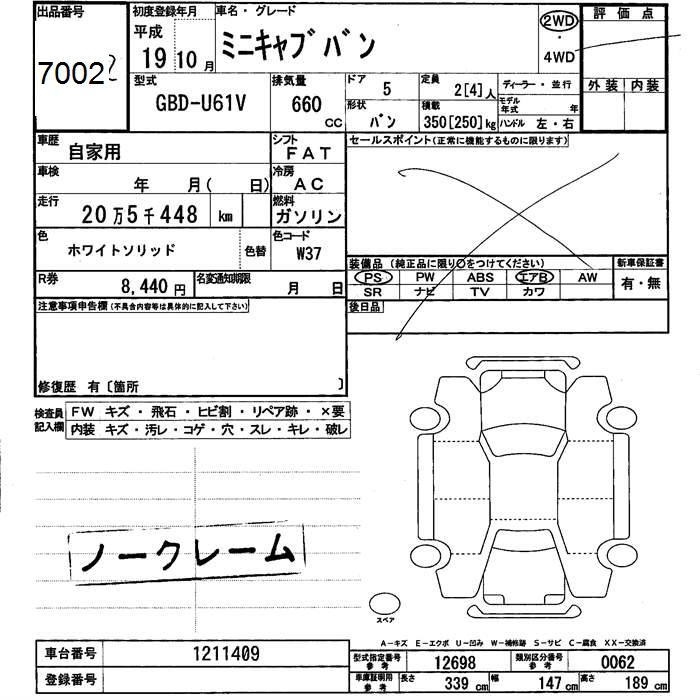 出品番号
70022
初度登録年月
平成
19 10 月
車名・グレード
ミニキャブバン
2WD
4WD
評価点
外装 内装
型式
GBD-U61V
排気量
660 CC
ドア
5
定員
2[4]人
ディーラー・並行
モデル年式 年
形状
バン
積載
350[250]kg
ハンドル 左・右
車歴
自家用
シフト
FAT
セールスポイント(正常に機能するものに限ります)
車検
年 月( 日)
冷房
AC
走行
20万5千448 km
燃料
ガソリン
色
ホワイトソリッド
色替
色コード
W37
装備品 (純正品に限り○をつけてください)
新車保証書
PS PW ABS エアB AW
有・無
SR ナビ TV カワ
R券
8,440 円
名変通知期限
月 日
後日品
注意事項申告欄(不具合内容等は具体的に記入して下さい)
修復歴 有〔箇所 〕
検査員記入欄
FW キズ・飛石・ヒビ割・リペア跡・×要
内装 キズ・汚レ・コゲ・穴・スレ・キレ・破レ
ノークレーム
スペア
A−キズ E−エクボ U−凹み W−補修跡 S−サビ C−腐食 XX−交換済
車台番号
1211409
登録番号
型式指定番号 参考
12698
類別区分番号 参考
0062
車庫証明用 参考
長さ 339 cm
幅 147 cm
高さ 189 cm